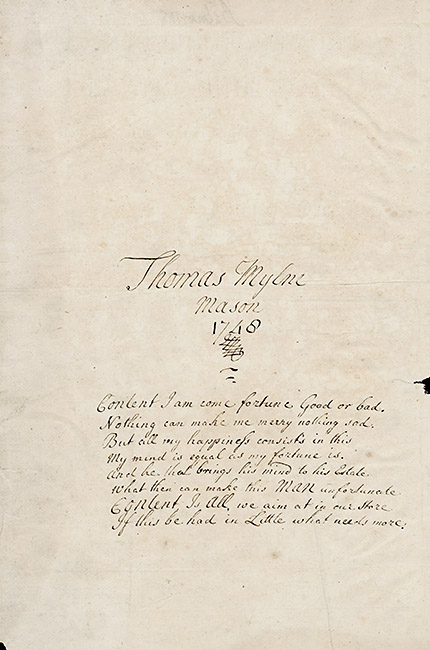 Thomas Mylne
Mason
1748
Content I am come fortune Good or bad.
Nothing can make me merry nothing sad.
But all my happiness consists in this
My mind is equal as my fortune is.
And he that brings his mind to his Estate
What then can make this MAN unfortunate
Content, Is All, we aim at in our Store
If this be had in Little what needs more;